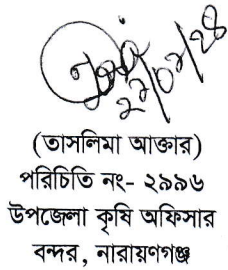 ২২/০২/২৪
(তাসলিমা আক্তার)
পরিচিতি নং- ২৯৯৬
উপজেলা কৃষি অফিসার
বন্দর, নারায়ণগঞ্জ